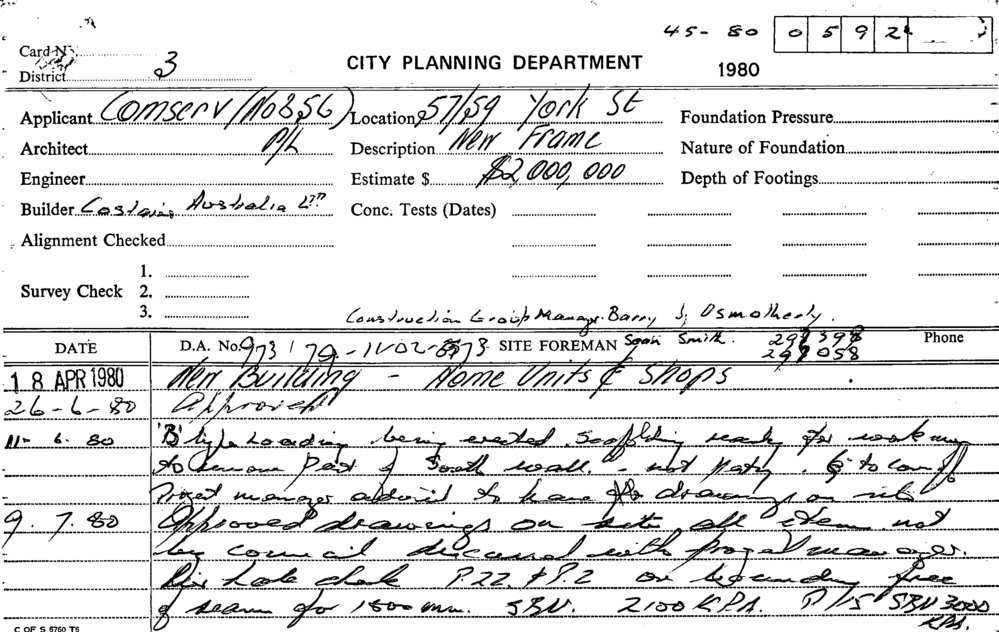 45-80 0592
Card No.
District 3
CITY PLANNING DEPARTMENT
1980
Applicant Comserv (No 856) P/L
Location 57/59 York St
Foundation Pressure
Architect
Description New Frame
Nature of Foundation
Engineer
Estimate $ $2,000,000
Depth of Footings
Builder Costains Australia Ltd
Conc. Tests (Dates)
Alignment Checked
1.
Survey Check 2.
3.
Construction Group Manager Barry J. Osmotherly.
DATE D.A. No. 973/79 SITE FOREMAN Sean Smith. Phone
18 APR 1980 New Building - Home Units & Shops
26-6-80 Approved
11-6-80 'B' type hoarding being erected Scaffolding ready for
to remove part of South wall. - not party.
Project manager advised to have drawings on site
9.7.80 Approved drawings on site, all item not
by council discussed with project manager.
hole check P.22 & P.2 on boundary free
of seams for 1500 mm. SBV. 2100 KPA. P/15 SBV 3000
KPA.
C OF S 5760 T6